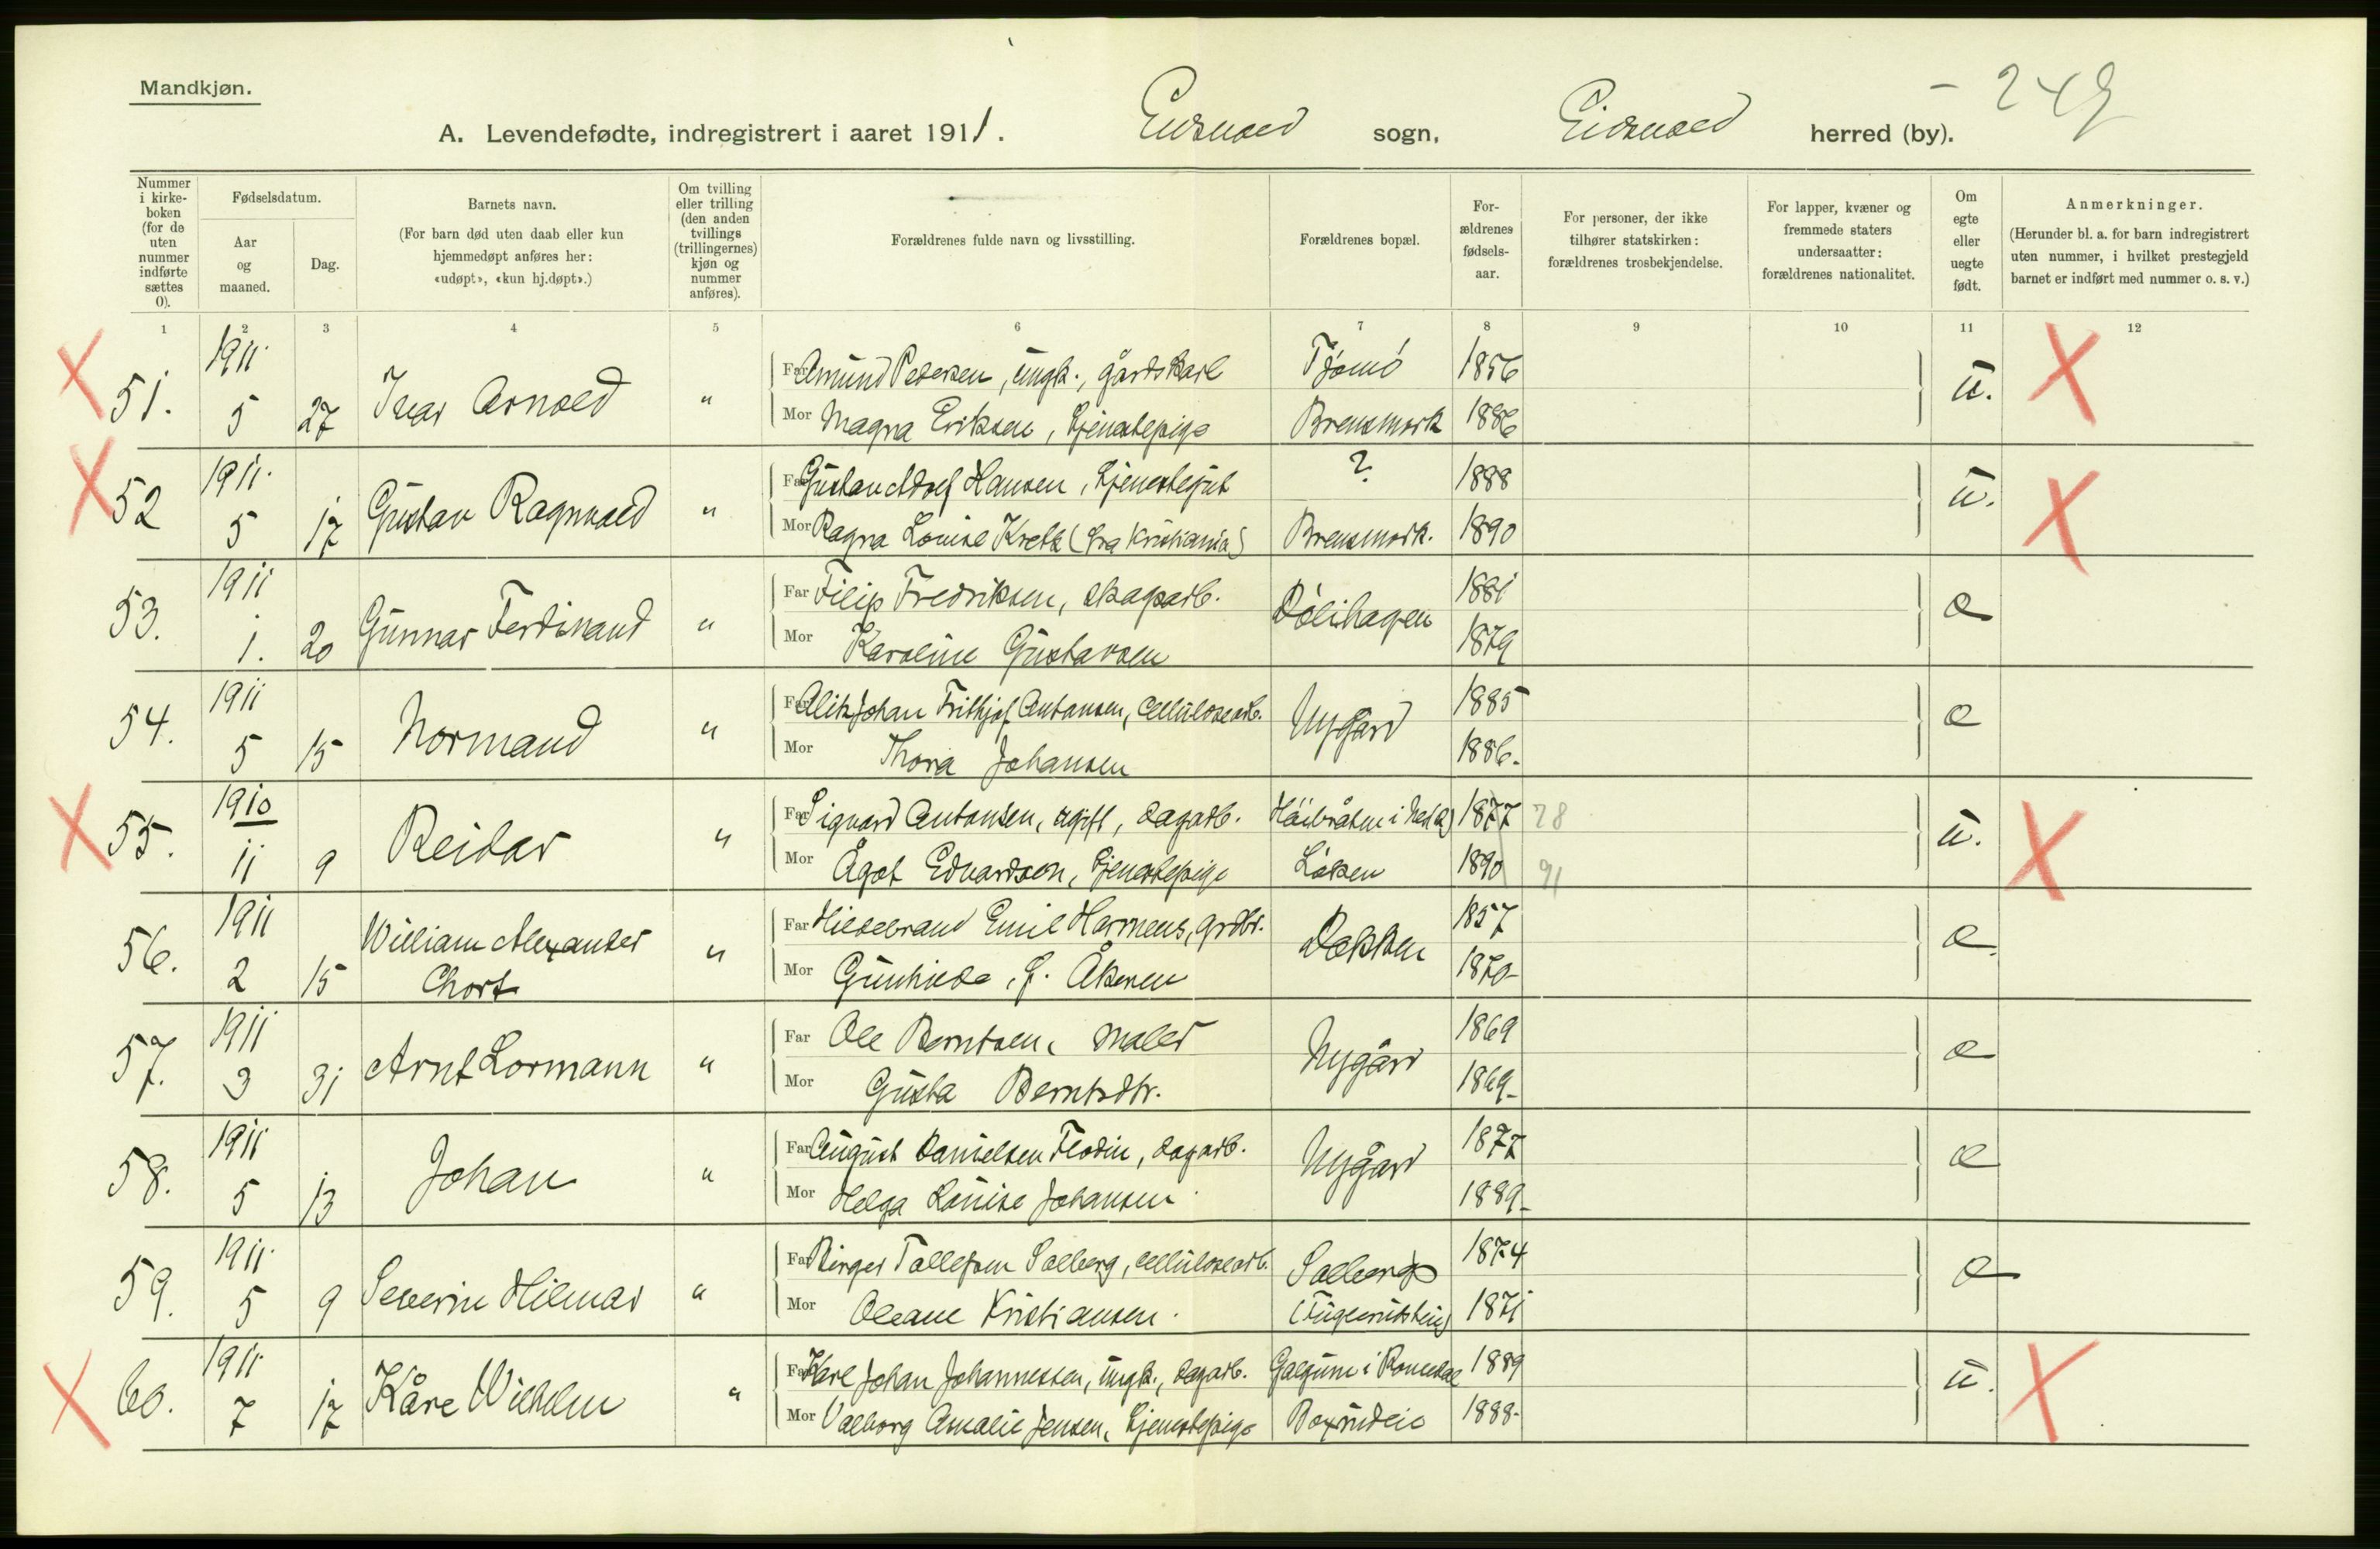 Mandkjøn.
A. Levendefødte, indregistrert i aaret 1911. Eidsvold sogn, Eidsvold herred (by). - 249
Nummer i kirkeboken (for de uten nummer indførte sættes 0).
Fødselsdatum.
Aar og maaned.
Dag.
Barnets navn.
(For barn død uten daab eller kun hjemmedøpt anføres her: «udøpt», «kun hj.døpt».)
Om tvilling eller trilling (den anden tvillings (trillingernes) kjøn og nummer anføres).
Forældrenes fulde navn og livsstilling.
Forældrenes bopæl.
Forældrenes fødselsaar.
For personer, der ikke tilhører statskirken: forældrenes trosbekjendelse.
For lapper, kvæner og fremmede staters undersaatter: forældrenes nationalitet.
Om egte eller uegte født.
Anmerkninger.
(Herunder bl. a. for barn indregistrert uten nummer, i hvilket prestegjeld barnet er indført med nummer o. s. v.)
1 2 3 4 5 6 7 8 9 10 11 12
51. 1911 5 27 Ivar Arnold " Far Amund Pedersen, ungk., gårdskarl Tjømö 1856 u.
Mor Magna Eriksen, tjenestepige Brensmork 1886
52 1911 5 17 Gustav Ragnvald " Far Gustav Adolf Hansen, tjenestegut ? 1888 u.
Mor Ragna Louise (fra Kristiania) Brensmork. 1890
53. 1911 1. 20 Gunnar Ferdinand " Far Filip Fredriksen, Dölihagen 1881 e
Mor Karoline Gustavsen 1879
54. 1911 5 15 Normand " Far Johan Frithjof Antonsen, cellulosearb. Nygård 1885 e
Mor Thora Johansen 1886.
55. 1910 11 9 Reidar " Far Sigvard Antonsen, ugift, dagarb. 1877 78 u.
Mor Ågot Edvardsen, tjenestepige Löken 1890 91
56. 1911 2 15 William Alexander " Far Hildebrand Emil Harmens, grdbr. Dokken 1857 e.
Chort Mor Gunhilde, f. Åkeren 1870
57. 1911 3 31 Arnt Lormann " Far Ole Berntsen, maler Nygård 1869 e
Mor Gusta Berntsdtr. 1869
58. 1911 5 13 Johan " Far August Danielsen Flodin, dagarb. Nygård 1877 e
Mor Helga Louise Johansen 1889
59. 1911 5 9 Severin Hilmar " Far Birger Tollefsen Solberg, cellulosearb. Solberg 1874 e
Mor Oleane Kristiansen. 1871
60. 1911 7 17 Kåre Wilhelm " Far Karl Johan Johannessen, ungk., dagarb. i Romedal 1889 u.
Mor Valborg Amalie Jensen, tjenestepige 1888